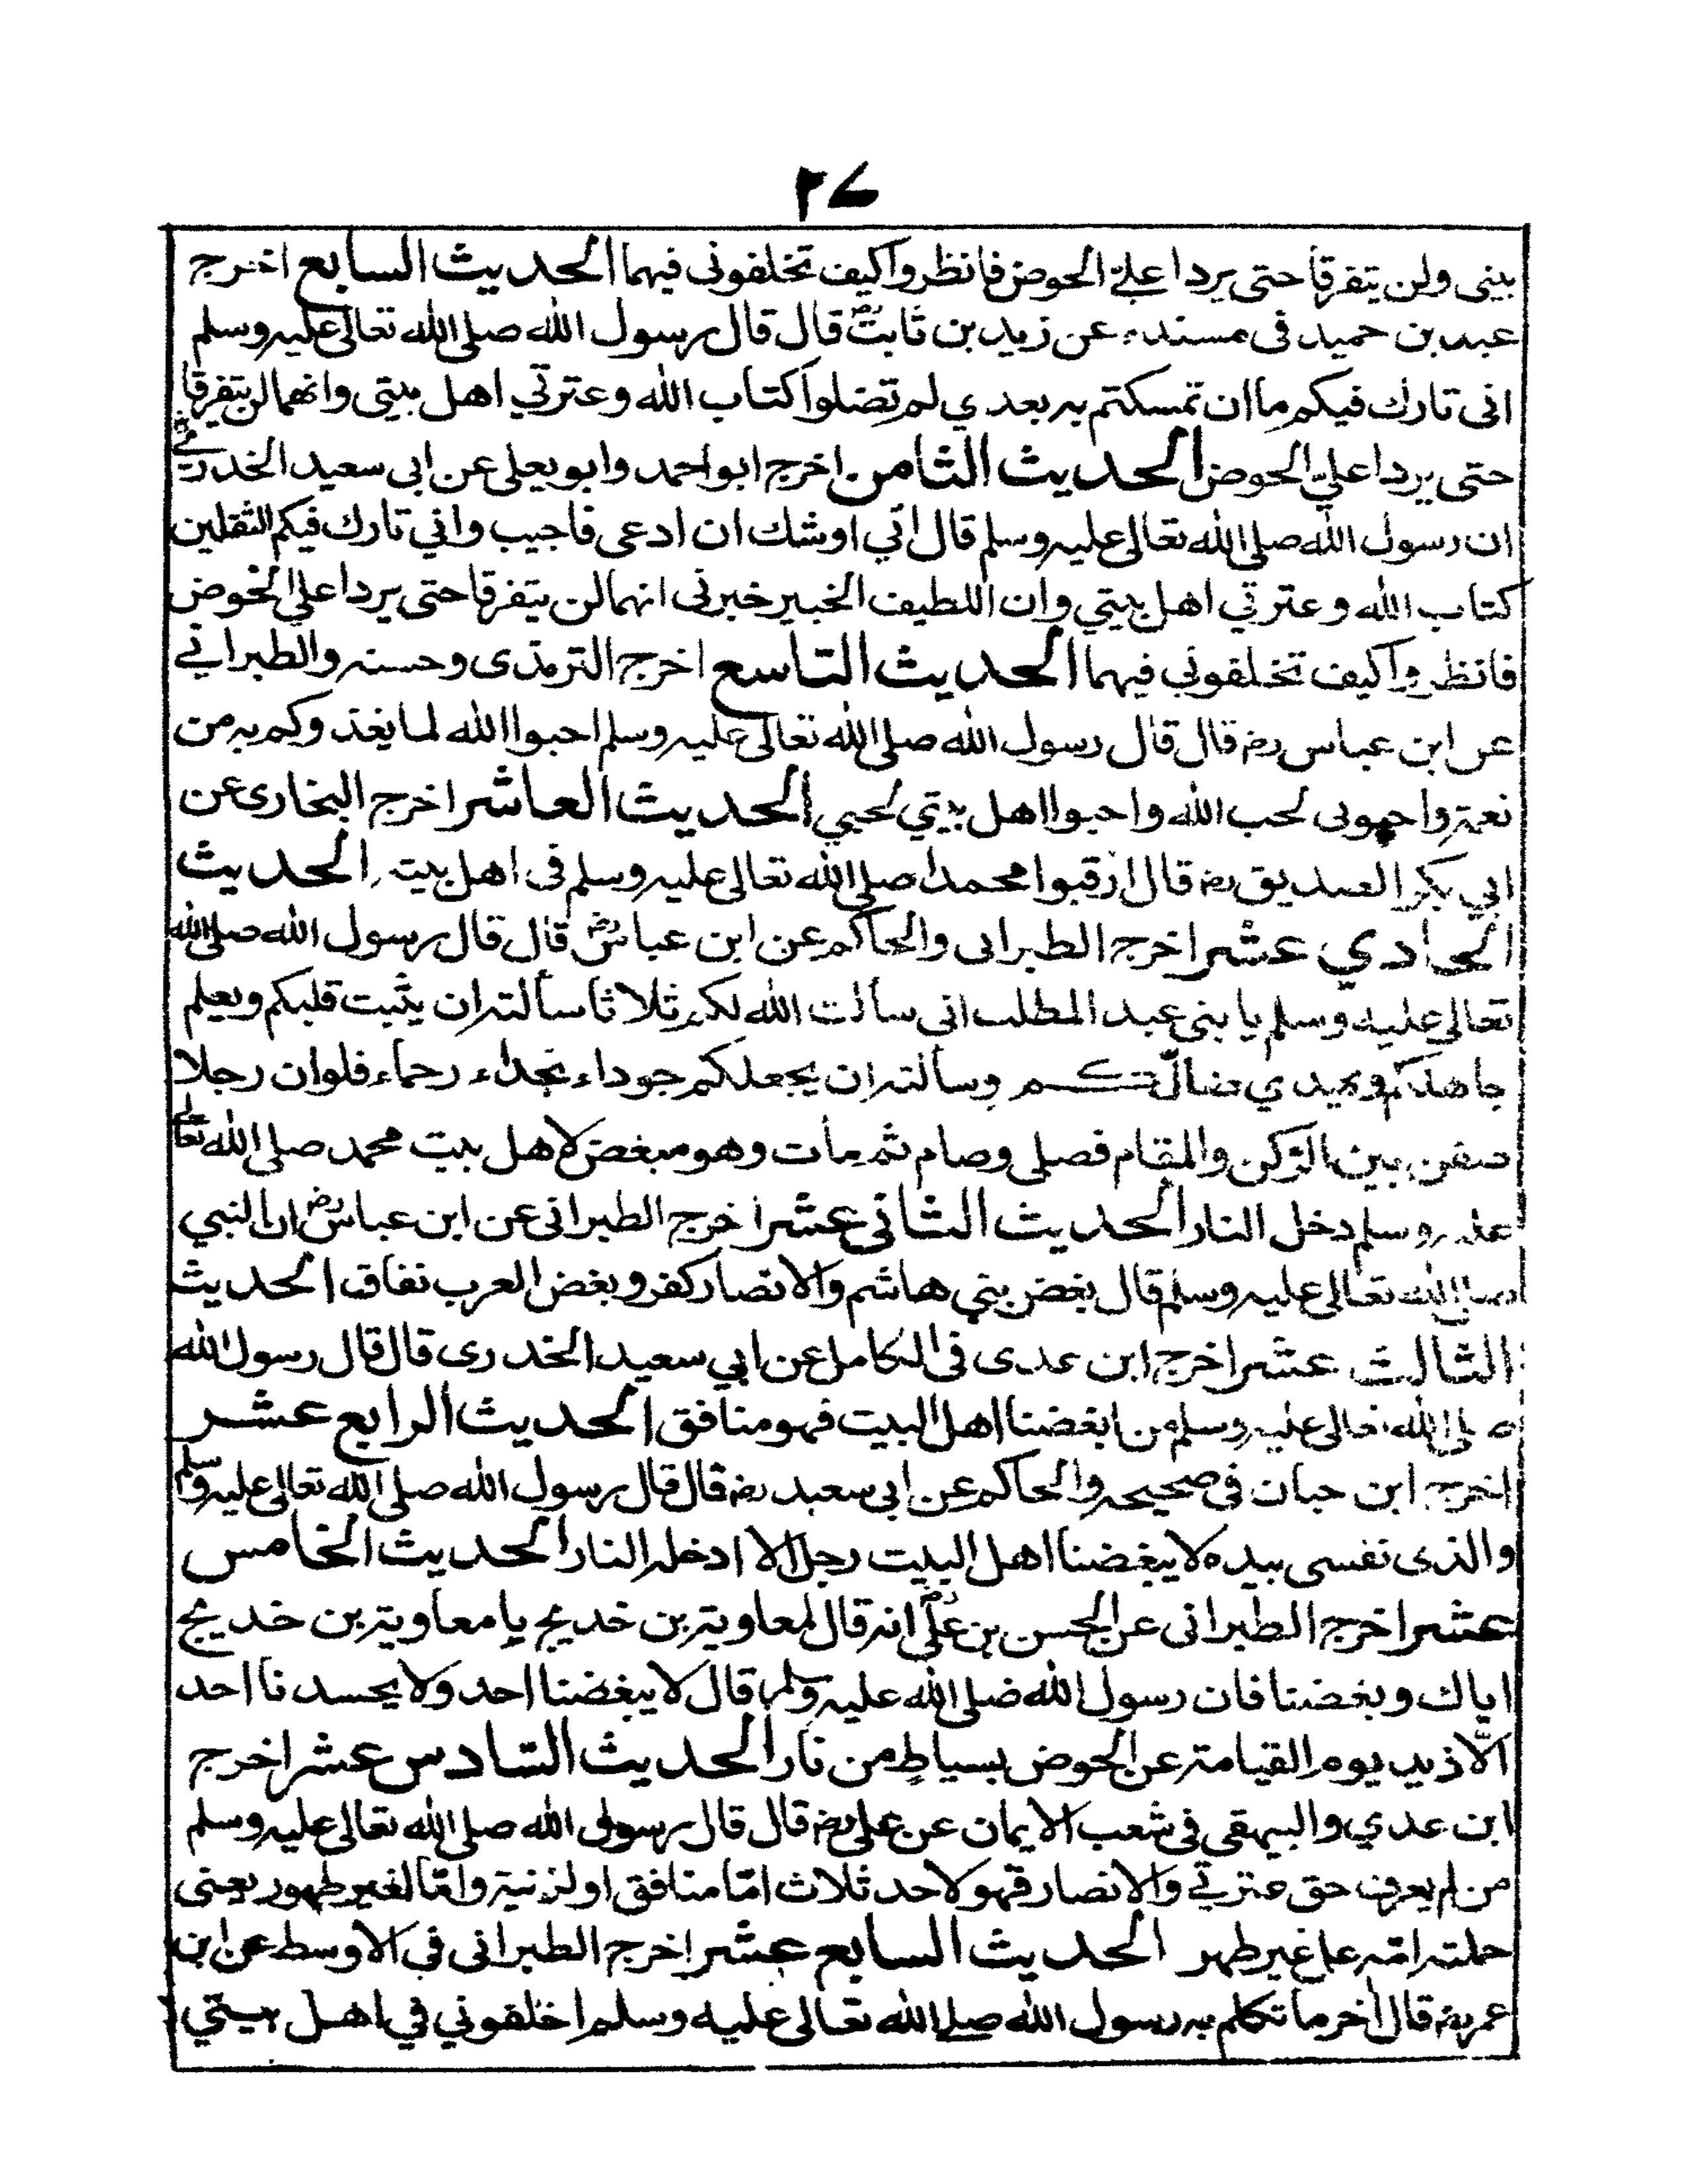 ٢٧
بيتى ولن يتفرقا حتى يردا على الحوض فانظروا كيف تخلفونى فيهما الحديث السابع اخرج
عبد بن حميد فى مسنده عن زيد بن ثابت رض قال قال رسول الله صلى الله تعالى عليه وسلم
انى تارك فيكم ما ان تمسكتم به بعدي لم تضلوا كتاب الله وعترتي اهل بيتى وانهما لن يتفرقا
حتى يردا علي الحوض الحديث الثامن اخرج ابو احمد وابو يعلى عن ابي سعيد الخدرى رض
ان رسول الله صلى الله تعالى عليه وسلم قال اني اوشك ان ادعى فاجيب واني تارك فيكم الثقلين
كتاب الله وعترتي اهل بيتي وان اللطيف الخبير خبرنى انهما لن يتفرقا حتى يردا علي الحوض
فانظروا كيف تخلفوني فيهما الحديث التاسع اخرج الترمذى وحسنه والطبرانى
عن ابن عباس رض قال قال رسول الله صلى الله تعالى عليه وسلم احبوا الله لما يغذوكم به من
نعمة واحبونى لحب الله واحبوا اهل بيتي لحبي الحديث العاشر اخرج البخارى عن
ابي بكر الصديق رض قال ارقبوا محمدا صلى الله تعالى عليه وسلم فى اهل بيته الحديث
الحادي عشر اخرج الطبرانى والحاكم عن ابن عباس رض قال قال رسول الله صلى الله
تعالى عليه وسلم يا بنى عبد المطلب انى سألت الله لكم ثلاثا سألته ان يثبت قلبكم ويعلم
جاهلكم ويهدي ضالكم وسألته ان يجعلكم جوداء نجداء رحماء فلو ان رجلا
صفن بين الركن والمقام فصلى وصام ثم مات وهو مبغض لاهل بيت محمد صلى الله تعالى
عليه وسلم دخل النار الحديث الثانى عشر اخرج الطبرانى عن ابن عباس رض ان النبي
صلى الله تعالى عليه وسلم قال بغض بني هاشم والانصار كفر وبغض العرب نفاق الحديث
الثالث عشر اخرج ابن عدى فى الكامل عن ابي سعيد الخدرى قال قال رسول الله
صلى الله تعالى عليه وسلم من ابغضنا اهل البيت فهو منافق الحديث الرابع عشر
اخرج ابن حبان فى صحيحه والحاكم عن ابى سعيد رض قال قال رسول الله صلى الله تعالى عليه وسلم
والذى نفسى بيده لا يبغضنا اهل البيت رجل الا ادخله النار الحديث الخامس
عشر اخرج الطبرانى عن الحسن بن على رض انه قال لمعاوية بن خديج يا معاوية بن خديج
اياك وبغضنا فان رسول الله صلى الله عليه وسلم قال لا يبغضنا احد ولا يحسدنا احد
الّا ذيد يوم القيامة عن الحوض بسياط من نار الحديث السادس عشر اخرج
ابن عدي والبيهقى فى شعب الايمان عن على رض قال قال رسول الله صلى الله تعالى عليه وسلم
من لم يعرف حق عترتي والانصار فهو لاحد ثلاث امّا منافق او لزنية وامّا لغير طهور يعنى
حملته امّه على غير طهر الحديث السابع عشر اخرج الطبرانى فى الاوسط عن ابن
عمر رض قال أخر ما تكلم به رسول الله صلى الله تعالى عليه وسلم اخلفوني في اهل بيتي